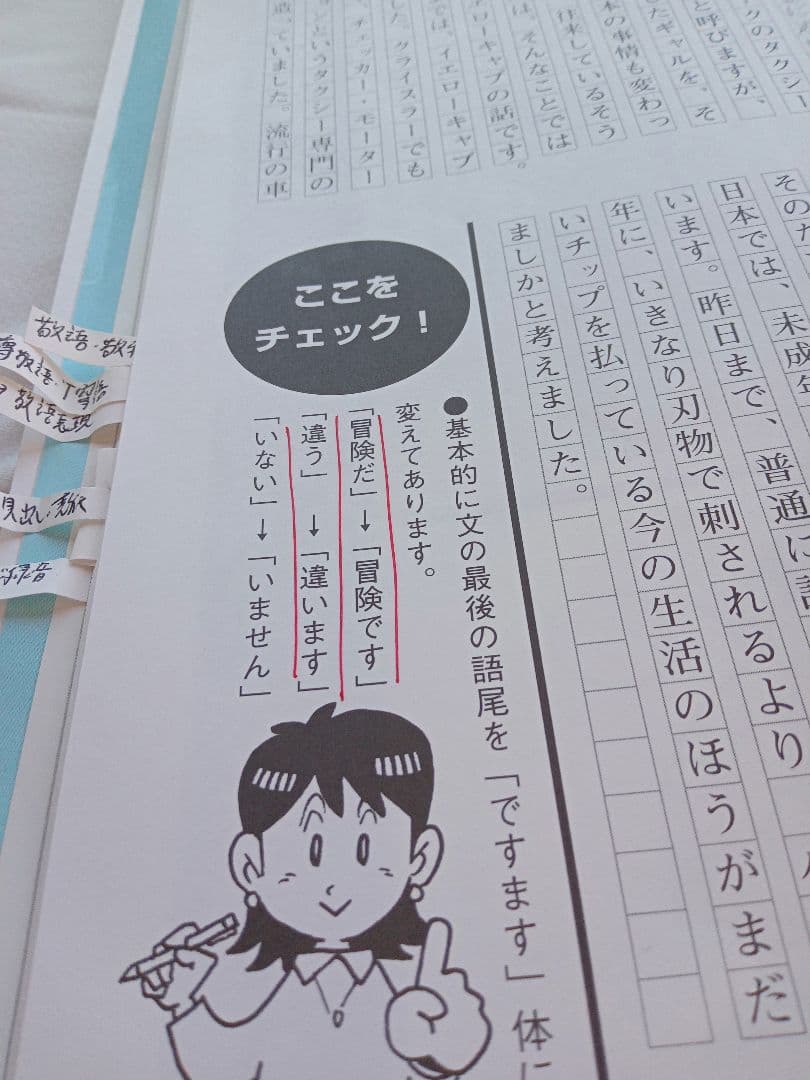 クのタクシー
と呼びますが、
たギャルを、そ
本の事情も変わっ
往来しているそう
は、そんなことでは
ローキャブの話です。
では、イエローキャブ
した。クライスラーでも
、チェッカー・モーター
ョンというタクシー専門の
造っていました。流行の車
日本では、未成年
います。昨日まで、普通に
年に、いきなり刃物で刺されるより
いチップを払っている今の生活のほうがまだ
ましかと考えました。
ここを
チェック！
●基本的に文の最後の語尾を「ですます」体に
変えてあります。
「冒険だ」→「冒険です」
「違う」→「違います」
「いない」→「いません」
敬語・敬
敬語表現
見出し